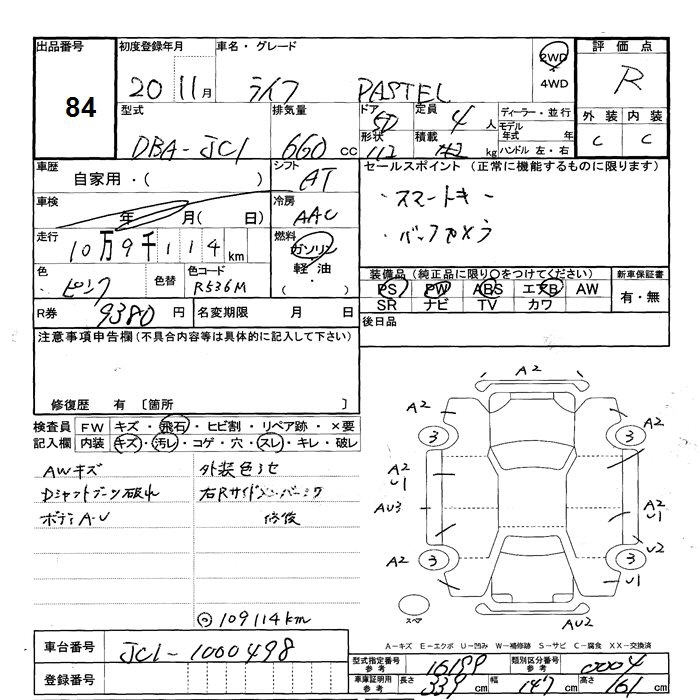 出品番号
84
初度登録年月
20 11月
車名・グレード
ライフ PASTEL
2WD
4WD
評価点
R
外装 内装
C C
型式
DBA-JC1
排気量
660 cc
ドア
5D
形状
定員
4 人
積載
kg
ディーラー・並行
モデル年式 年
ハンドル 左・右
車歴
自家用・( )
シフト
AT
車検
年 月( 日)
冷房
AAC
走行
10万9千114km
燃料
ガソリン
軽油
・( )
色
ピンク
色替
色コード
R536M
R券
9380円
名変期限 月 日
セールスポイント(正常に機能するものに限ります)
・スマートキー
・バックカメラ
装備品(純正品に限り○をつけてください)
PS PW ABS エアB AW
SR ナビ TV カワ
新車保証書
有・無
後日品
注意事項申告欄(不具合内容等は具体的に記入して下さい)
修復歴 有 〔箇所 〕
検査員記入欄
FW キズ・飛石・ヒビ割・リペア跡・×要
内装 キズ・汚レ・コゲ・穴・スレ・キレ・破レ
AWキズ
Dシャフトブーツ破れ
ボディA-U
外装色うせ
右Rサイドメンバーミウ
修復
◎109114km
A2
A2
A2
3
3
A2
U1
AU3
A2
U1
U2
A2
3
3
U1
AU2
スペア
A-キズ E-エクボ U-凹み W-補修跡 S-サビ C-腐食 XX-交換済
車台番号
JC1-1000498
登録番号
型式指定番号 参考
16199
類別区分番号 参考
0004
車庫証明用 参考
長さ 339cm
幅 147cm
高さ 161cm